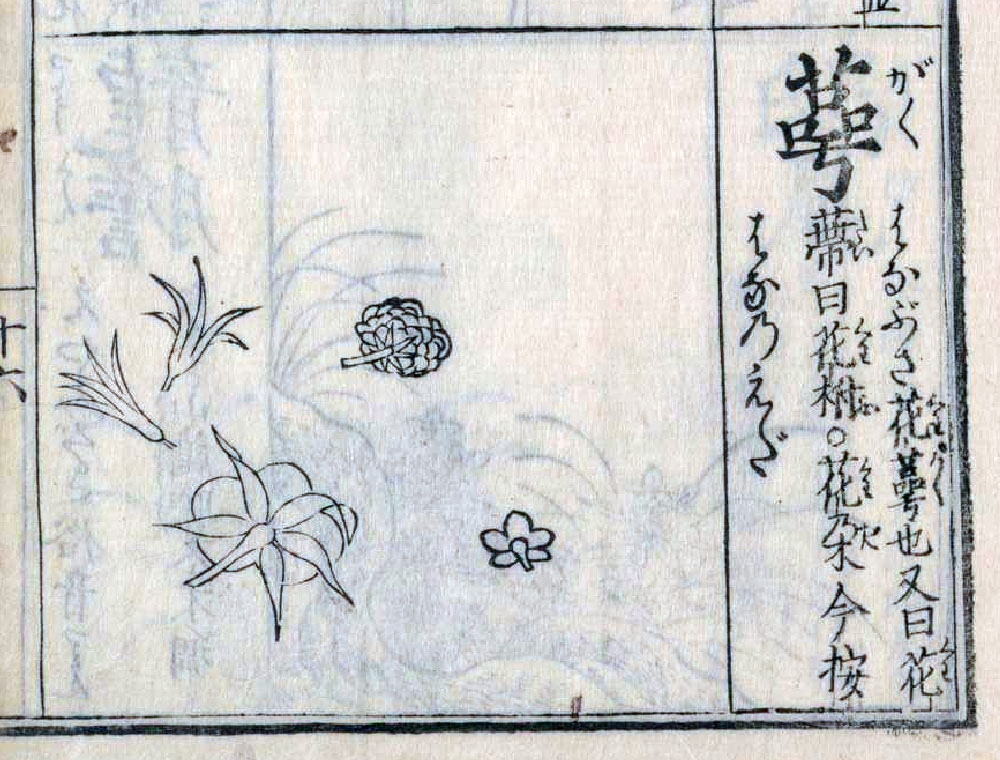 萼
がく
はなぶさ花萼也又曰花
蔕曰花柎○花朶今按
はなのえだ
十六